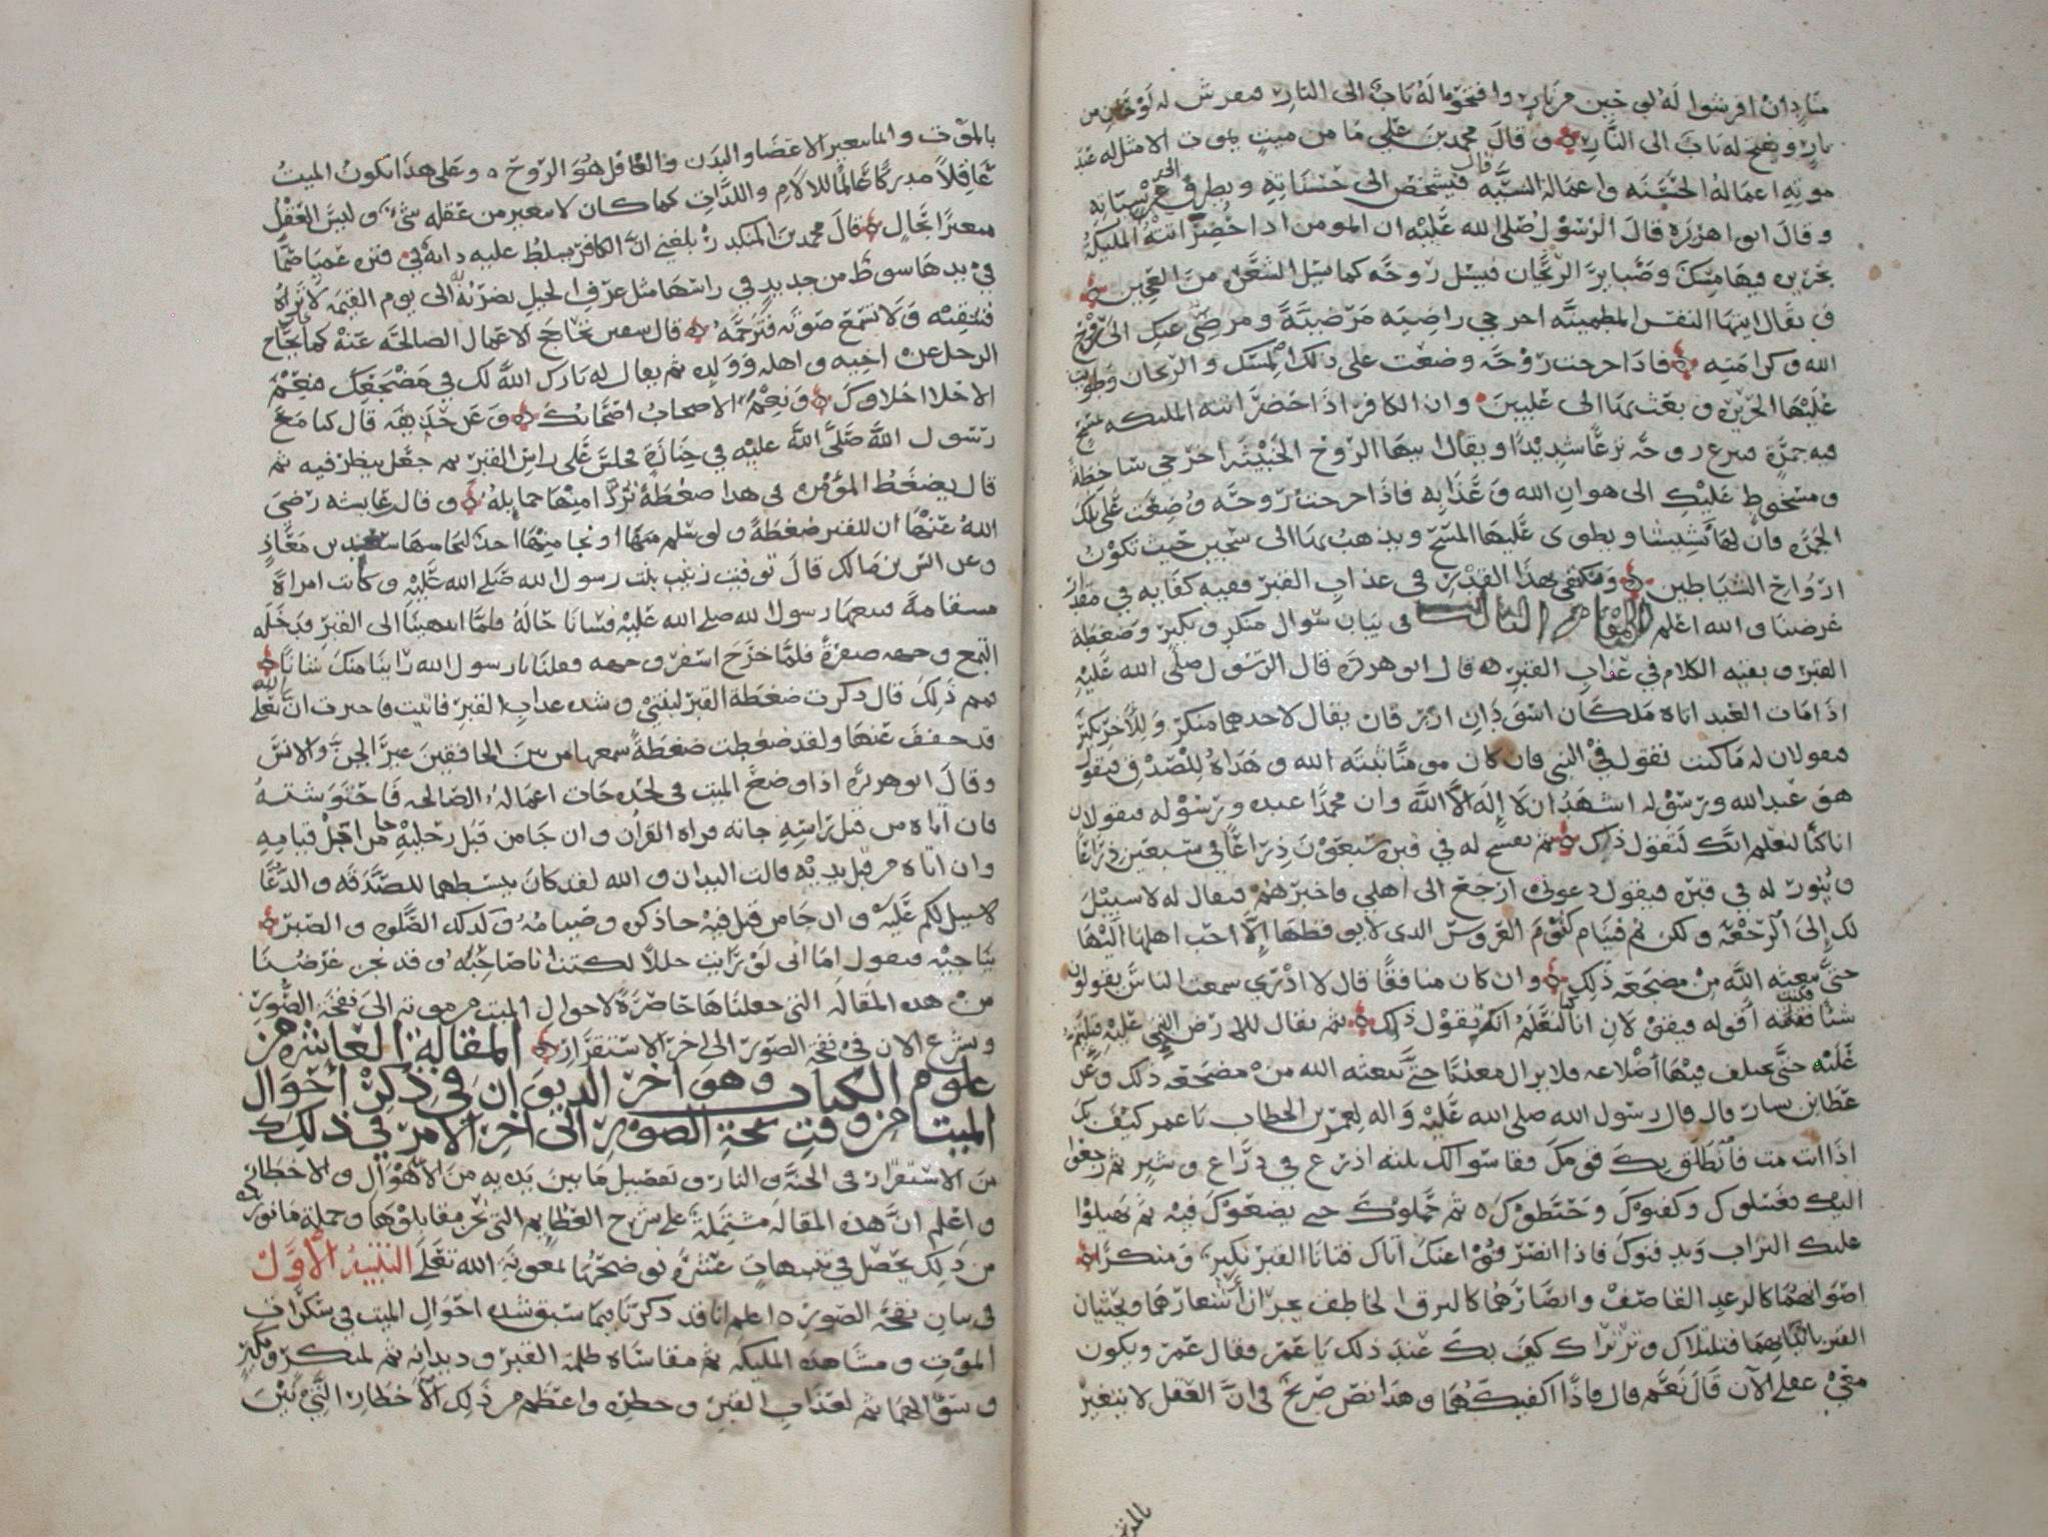 مناد ان افرشوا له لوحين من نار وافتحوا له بابا الى النار فيفرش له لوحان من
نار ويفتح له باب الى النار وقال محمد بن علي ما من ميت يموت الا مثل له عند
موته اعماله الحسنه واعماله السيه قال فيشخص الى حسناته ويطرق عن سياته
وقال ابو هريره قال الرسول صلى الله عليه ان المومن اذا حضر اتته المليكه
بحريره فيها مسك وضباير الريحان فيسل روحه كما تسل الشعره من العجين
ويقال ايتها النفس المطمينه اخرجي راضيه مرضيه ومرضي عنك الى روح
الله وكرامته فاذا اخرجت روحه وضعت على ذلك المسك والريحان وطويت
عليها الحريره وبعث بها الى عليين وان الكافر اذا حضر اتته المليكه بمسح
فيه جمرة فينزع روحه نزعا شديدا ويقال ايتها الروح الخبيثه اخرجي ساخطة
ومسخوط عليك الى هوان الله وعذابه فاذا اخرجت روحه وضعت على تلك
الجمره فان لها نشيشا ويطوى عليها المسح ويذهب بها الى سجين حيث تكون
ارواح الشياطين ونكتفي بهذا القدر في عذاب القبر ففيه كفايه في مقدار
غرضنا والله اعلم المقام الثالث في بيان سوال منكر ونكير وضغطة
القبر وبقيه الكلام في عذاب القبر قال ابو هريرة قال الرسول صلى الله عليه
اذا مات العبد اتاه ملكان اسودان ازرقان يقال لاحدهما منكر وللاخر نكير
فيقولان له ما كنت تقول في النبي فان كان مومنا ثبته الله وهداه للصدق فيقول
هو عبد الله ورسوله اشهد ان لا إله الا الله وان محمدا عبده ورسوله فيقولان
انا كنا لنعلم انك لتقول ذلك ثم يفسح له في قبره سبعون ذراعا في سبعين ذراعا
وينور له في قبره فيقول دعوني ارجع الى اهلي فاخبرهم فيقال له لا سبيل
لك إلى الرجعة ولكن نم فينام كنوم العروس الذي لا يوقظها إلا احب اهلها اليها
حتى يبعثه الله من مضجعه ذلك وان كان منافقا قال لا ادري سمعت الناس يقولون
شيا فكنت اقوله فيقولان انا كنا لنعلم انك تقول ذلك ثم يقال للارض التيمي عليه فتلتيم
عليه حتى يختلف فيها أضلاعه فلا يزال معذبا حتى يبعثه الله من مضجعه ذلك وعن
عطا بن يسار قال قال رسول الله صلى الله عليه واله لعمر بن الخطاب يا عمر كيف بك
اذا انت مت فانطلق بك قومك فقاسوا لك ثلثه اذرع في ذراع وشبر ثم رجعوا
اليك فغسلوك وكفنوك وحنطوك ثم حملوك حتى يضعوك فيه ثم يهيلوا
عليك التراب ويدفنوك فاذا انصرفوا عنك اتاك فتانا القبر نكير ومنكر
اصواتهما كالرعد القاصف وابصارهما كالبرق الخاطف يجران أشعارهما ويحثيان
القبر بانيابهما فتلتلاك وترتراك كيف بك عند ذلك يا عمر فقال عمر ويكون
معي عقلي الآن قال نعم قال فاذا اكفيكهما وهذا نص صريح في ان العقل لا يتغير
بالموت وانما يتغير الاعضا والبدن والعاقل هو الروح وعلى هذا يكون الميت
عاقلا مدركا عالما للالام واللذات كما كان لا يتغير من عقله شيء وليس العقل
متغيرا بحال قال محمد بن المنكدر بلغني ان الكافر يسلط عليه دابة في قبره عميا صما
في يدها سوط من حديد في راسها مثل عرف الجمل تضربه الى يوم القيمه لا تراه
فتتقيه ولا تسمع صوته فترحمه قال تحاجج الاعمال الصالحه عنه كما يحاج
الرجل عن اخيه واهله وولده ثم يقال له بارك الله لك في مضجعك فنعم
الاخلا اخلاوك ونعم الاصحاب اصحابك وعن حذيفه قال كنا مع
رسول الله صلى الله عليه في جنازة فجلس على راس القبر ثم جعل ينظر فيه ثم
قال يضغط المؤمن في هذا ضغطة تزول منها حمايله وقال عايشه رضي
الله عنها ان للقبر ضغطة ولو سلم منها او نجا منها احد لنجا منها سعد بن معاذ
وعن انس بن مالك قال توفيت زينب بنت رسول الله صلى الله عليه وكانت امراة
مسقامة فتبعها رسول الله صلى الله عليه فسانا حاله فلما انتهينا الى القبر فدخله
التمع وجهه صفرة فلما خرج اسفر وجهه فقلنا يا رسول الله راينا منك شانا
فمم ذلك قال ذكرت ضغطة القبر لابنتي وشده عذاب القبر فاتيت فاخبرت ان الله تعالى
قد خفف عنها ولقد ضغطت ضغطة سمعها من بين الخافقين غير الجن والانس
وقال ابو هريرة اذا وضع الميت في لحده جات اعماله الصالحه فاحتوشته
فان اتاه من قبل راسه جاته قراه القران وان جا من قبل رجليه جا من اجل قيامه
وان اتاه من قبل يديه قالت اليدان والله لقد كان يبسطهما للصدقه والدعا
لا سبيل لكم عليه وان جا من قبل فيه جا ذكره وصيامه وكذلك الصلوه والصبر
ناحيه فيقول اما اني لو رايت خللا لكنت انا صاحبه وقد نجز غرضنا
من هذه المقاله التي جعلناها حاصرة لاحوال الميت من موته الى نفخة الصور
ونشرع الان في نفخه الصور الى اخر الاستقرار المقالة العاشرة من
علوم الكتاب وهو آخر الديوان في ذكر احوال
الميت من وقت نفخة الصور الى اخر الامر في ذلك
من الاستقرار في الجنه والنار وتفصيل ما بين يديه من الاهوال والاخطار
واعلم ان هذه المقاله مشتملة على شرح العظايم التي وجملة ما نورده
من ذلك يحصل في تنبيهات عشره نوضحها بمعونة الله تعلى التنبيه الاول
في بيان نفخه الصور اعلم انا قد ذكرنا فيما سبق شده احوال الميت في سكرات
الموت ومشاهده المليكه ثم مقاساه ظلمة القبر وديدانه ثم لمنكر ونكير
وسوالهما ثم لعذاب القبر وخطره واعظم من ذلك الاخطار التي بين